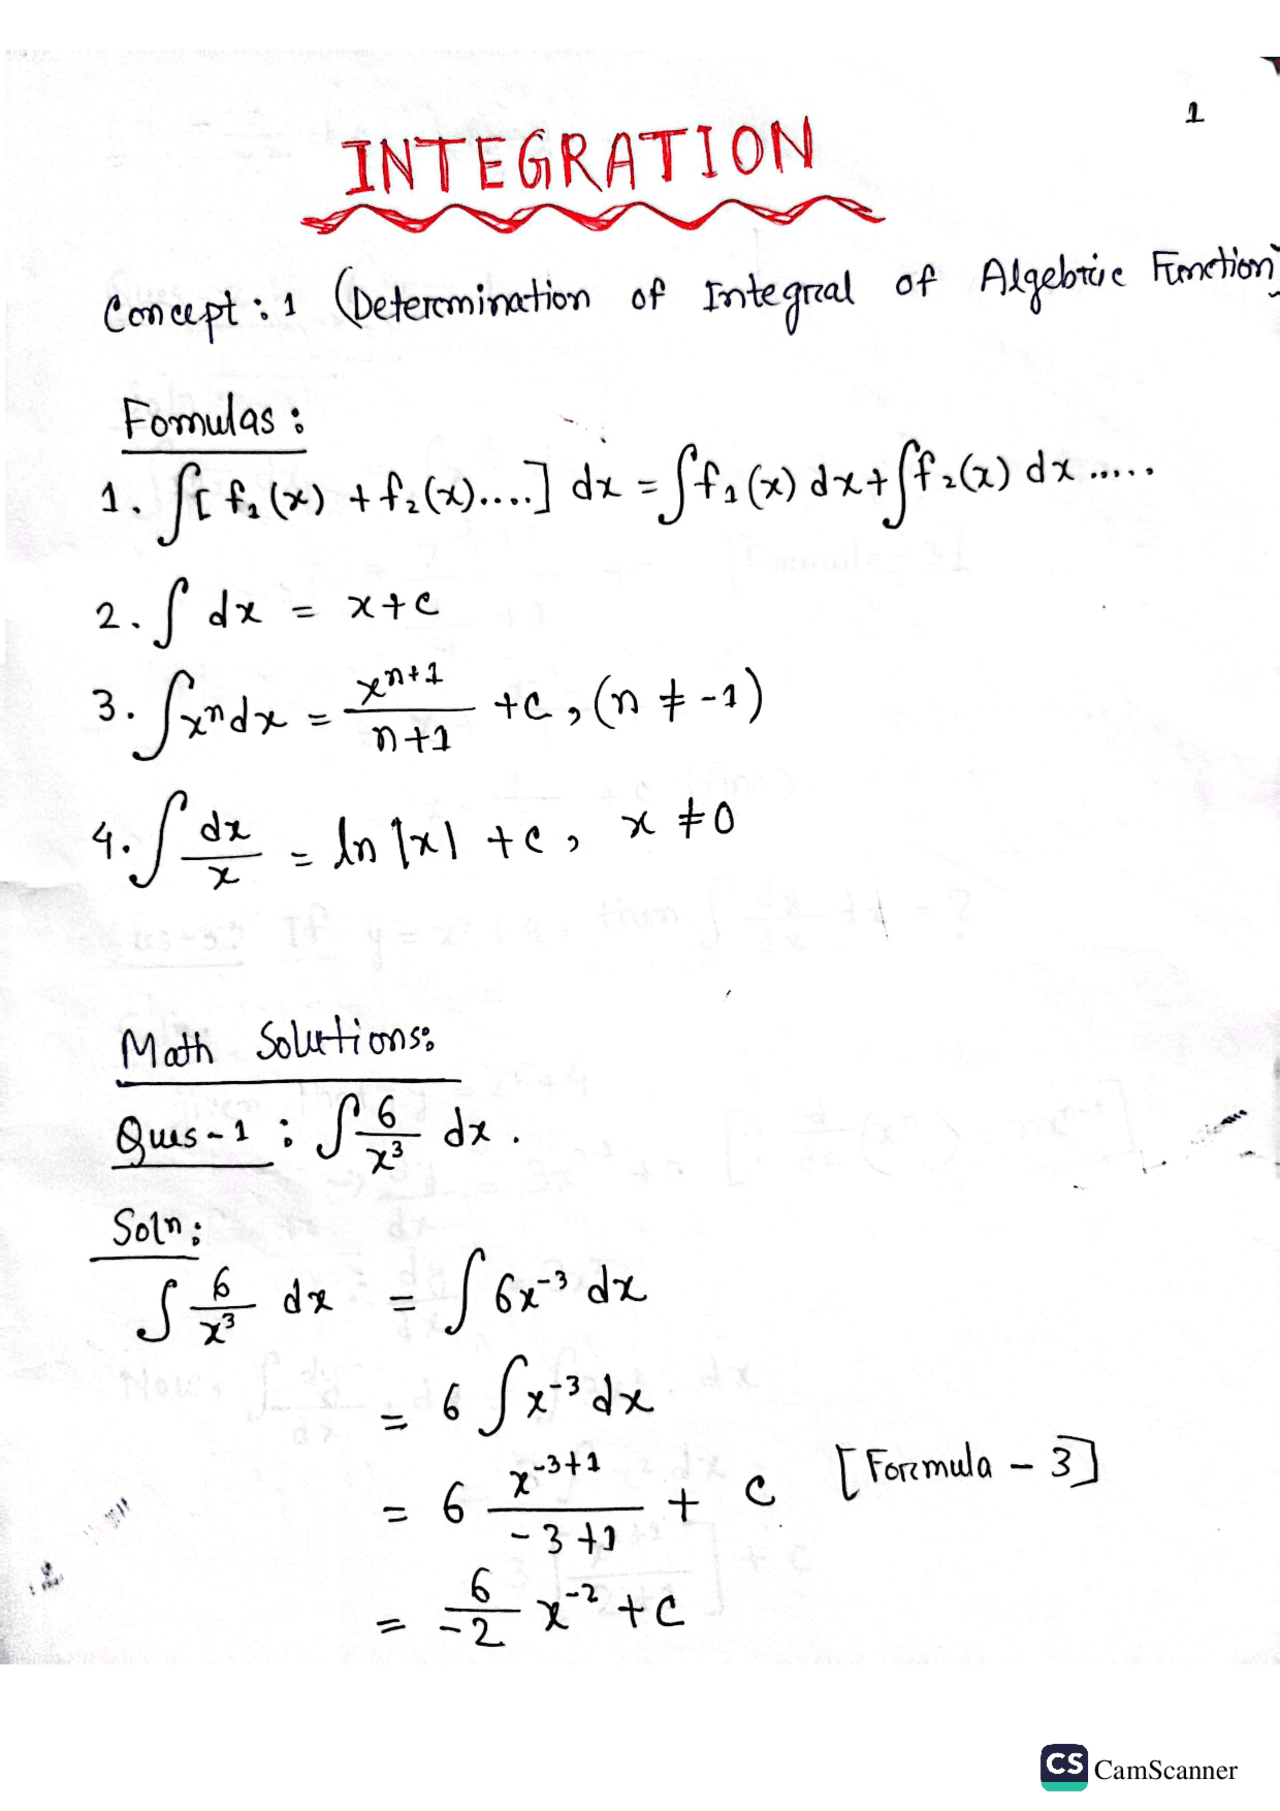 1
INTEGRATION
Concept : 1 (Determination of Integral of Algebric Function)
Fomulas :
1. ∫[ f₁(x) + f₂(x)....] dx = ∫f₁(x) dx + ∫f₂(x) dx .....
2. ∫ dx = x+c
3. ∫xⁿdx = xⁿ⁺¹/n+1 +c, (n ≠ -1)
4. ∫ dx/x = ln |x| +c, x ≠ 0
Math Solutions:
Ques-1 : ∫ 6/x³ dx .
Soln:
∫ 6/x³ dx = ∫ 6x⁻³ dx
= 6 ∫ x⁻³ dx
= 6 x⁻³⁺¹/-3+1 + c [Formula - 3]
= 6/-2 x⁻² + c
CS CamScanner